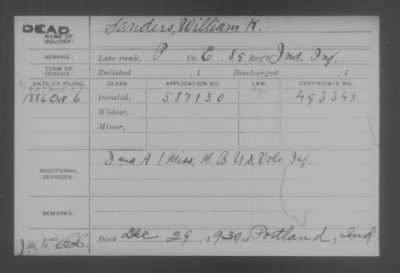 DEAD
NAME OF SOLDIER: Sanders, William K.
SERVICE: Late rank, P Co. E, 89 Reg't Ind. Inf.
TERM OF SERVICE: Enlisted , 1 Discharged , 1
DATE OF FILING. CLASS. APPLICATION NO. LAW. CERTIFICATE NO.
1886 Oct. 6 Invalid, 587130 493348
Widow,
Minor,
ADDITIONAL SERVICES: D and A 1 Miss. M. B. U.S. Vols. Inf.
REMARKS:
Died Dec 29, 1930 at Portland, Ind.